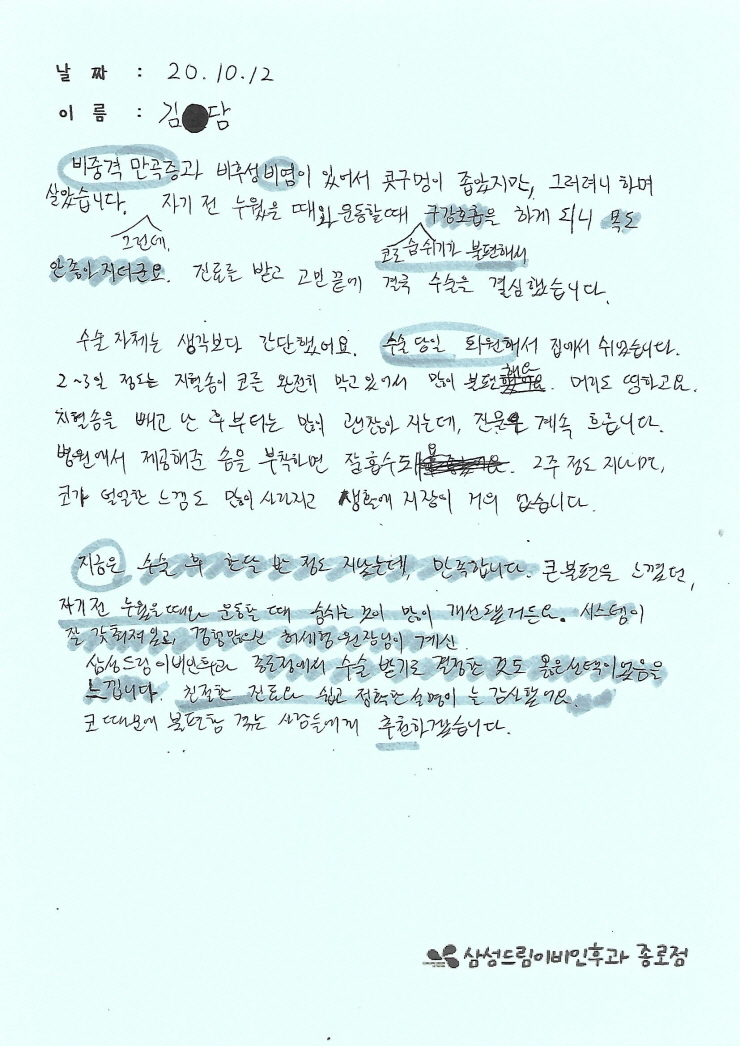 날 짜 : 20.10.12
이 름 : 김 담
비중격 만곡증과 비후성비염이 있어서 콧구멍이 좁았지만, 그러려니 하며
살았습니다. 그런데, 자기 전 누웠을 때와 운동할때 코로 숨쉬기가 불편해서 구강호흡을 하게 되니 목도
안좋아지더군요. 진료를 받고 고민 끝에 결국 수술을 결심했습니다.
수술 자체는 생각보다 간단했어요. 수술 당일 퇴원해서 집에서 쉬었습니다.
2~3일 정도는 지혈솜이 코를 완전히 막고 있어서 많이 불편했어요. 머리도 띵하고요.
지혈솜을 빼고 난 후부터는 많이 괜찮아 지는데, 진물은 계속 흐릅니다.
병원에서 제공해준 솜을 부착하면 잘 흡수돼요. 2주 정도 지나면,
코가 얼얼한 느낌도 많이 사라지고 생활에 지장이 거의 없습니다.
지금은 수술 후 한달 반 정도 지났는데, 만족합니다. 큰 불편을 느꼈던,
자기 전 누웠을때와 운동할 때 숨쉬는 것이 많이 개선됐거든요. 시스템이
잘 갖춰져있고, 경험많으신 허세형 원장님이 계신
삼성드림이비인후과 종로점에서 수술 받기로 결정한 것도 옳은선택이었음을
느낍니다. 친절한 진료와 쉽고 정확한 설명이 늘 감사했어요.
코 때문에 불편함 겪는 사람들에게 추천하겠습니다.
삼성드림이비인후과 종로점